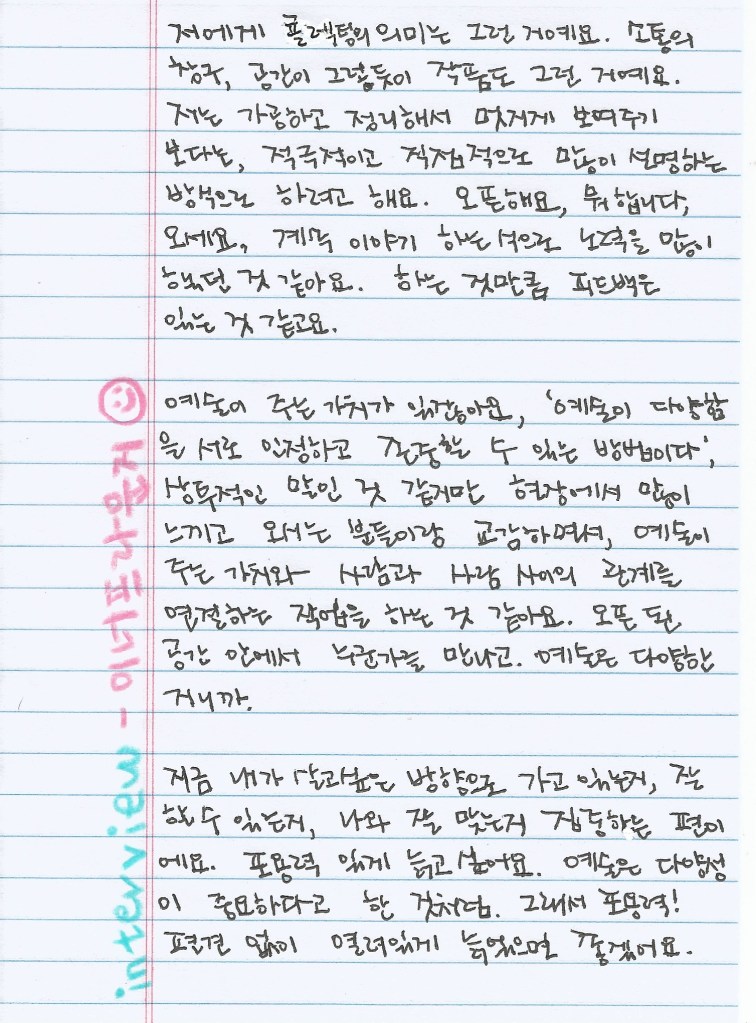 저에게 플렉텀의 의미는 그런 거예요. 소통의
창구, 공간이 그렇듯이 작품도 그런 거예요.
저는 가공하고 정리해서 멋지게 보여주기
보다는, 적극적이고 직접적으로 많이 설명하는
방식으로 하려고 해요. 오픈해요, 뭐합니다,
오세요, 계속 이야기 하는 식으로 노력을 많이
했던 것 같아요. 하는 것만큼 피드백은
있는 것 같고요.
예술이 주는 가치가 있잖아요, '예술이 다양함
을 서로 인정하고 존중할 수 있는 방법이다',
상투적인 말인 것 같지만 현장에서 많이
느끼고 오시는 분들이랑 교감하면서, 예술이
주는 가치와 사람과 사람 사이의 관계를
연결하는 작업을 하는 것 같아요. 오픈 된
공간 안에서 누군가를 만나고. 예술은 다양한
거니까.
지금 내가 살고싶은 방향으로 가고 있는지, 잘
할 수 있는지, 나와 잘 맞는지 집중하는 편이
에요. 포용력 있게 늙고 싶어요. 예술은 다양성
이 중요하다고 한 것처럼. 그래서 포용력!
편견 없이 열려있게 늙었으면 좋겠어요.
interview - 이너프라운지